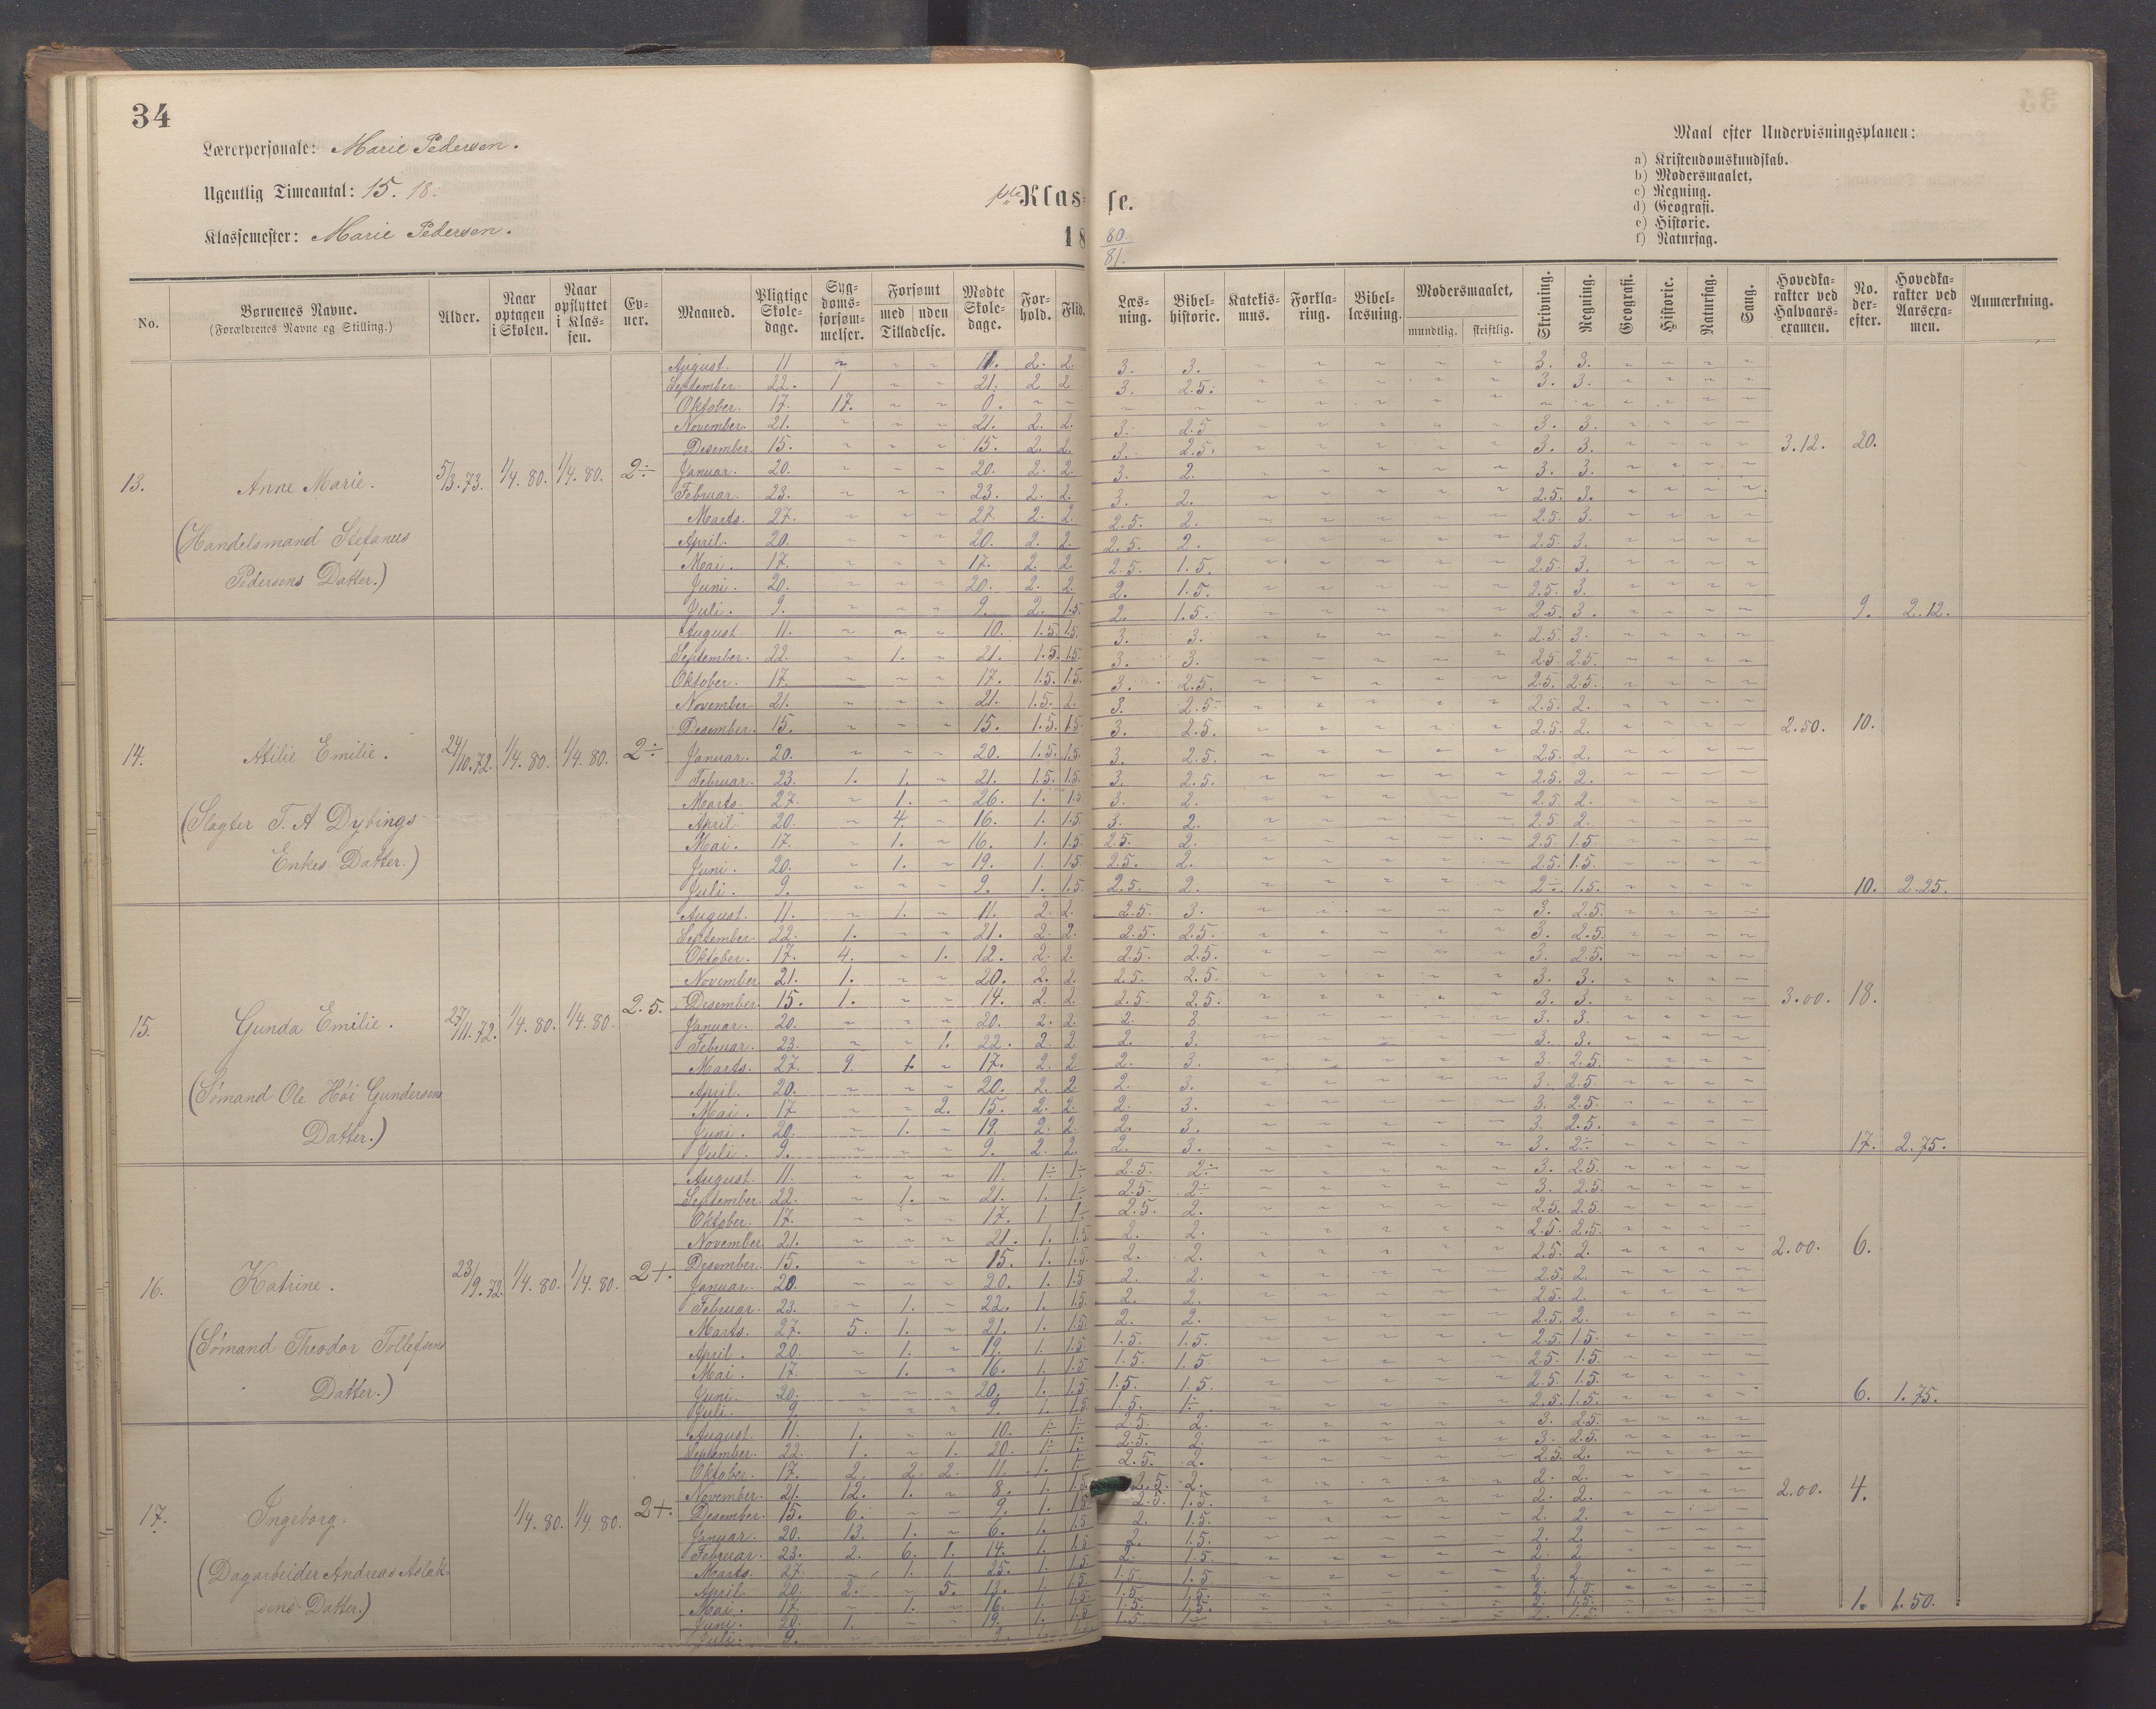 34
Lærerpersonale: Marie Pedersen.
Ugentlig Timeantal: 15. 18.
Klassemester: Marie Pedersen.
1ste Klasse.
1880/81.
Maal efter Undervisningsplanen:
a) Kristendomskundskab.
b) Modersmaalet.
c) Regning.
d) Geografi.
e) Historie.
f) Naturfag.
No. | Børnenes Navne. (Forældrenes Navne og Stilling.) | Alder. | Naar optagen i Skolen. | Naar opflyttet i Klassen. | Evner. | Maaned. | Pligtige Skoledage. | Sygdomsforsømmelser. | Forsømt med Tilladelse. | uden Tilladelse. | Mødte Skoledage. | Forhold. | Flid. | Læsning. | Bibelhistorie. | Katekismus. | Forklaring. | Bibellæsning. | Modersmaalet, mundtlig. | skriftlig. | Skrivning. | Regning. | Geografi. | Historie. | Naturfag. | Sang. | Hovedkarakter ved Halvaarsexamen. | No. derefter. | Hovedkarakter ved Aarsexamen. | Anmærkning.
13. Anne Marie. 5/3.73. 1/4.80. 1/4.80. 2÷
(Handelsmand Stefanus
Pedersens Datter.)
August. 11 ~ ~ ~ 11. 2. 2. 3. 3. ~ ~ ~ ~ ~ 3. 3. ~ ~ ~ ~
September. 22. 1 ~ ~ 21. 2 2 3. 2.5. ~ ~ ~ ~ ~ 3. 3. ~ ~ ~ ~
Oktober. 17. 17. ~ ~ 0. ~ ~ ~ ~ ~ ~ ~ ~ ~ ~ ~ ~ ~ ~ ~
November. 21. ~ ~ ~ 21. 2. 2. 3. 2.5 ~ ~ ~ ~ ~ 3. 3. ~ ~ ~ ~
Desember. 15. ~ ~ ~ 15. 2. 2. 3. 2.5. ~ ~ ~ ~ ~ 3. 3. ~ ~ ~ ~ 3.12. 20.
Januar. 20. ~ ~ ~ 20. 2. 2. 3. 2. ~ ~ ~ ~ ~ 3. 3. ~ ~ ~ ~
Februar. 23. ~ ~ ~ 23. 2. 2. 3. 2. ~ ~ ~ ~ ~ 2.5. 3. ~ ~ ~ ~
Marts. 27. ~ ~ ~ 27. 2. 2. 2.5. 2. ~ ~ ~ ~ ~ 2.5. 3. ~ ~ ~ ~
April. 20. ~ ~ ~ 20. 2. 2. 2.5. 2. ~ ~ ~ ~ ~ 2.5. 3. ~ ~ ~ ~
Mai. 17. ~ ~ ~ 17. 2. 2 2.5. 1.5. ~ ~ ~ ~ ~ 2.5. 3. ~ ~ ~ ~
Juni. 20. ~ ~ ~ 20. 2. 2. 2. 1.5. ~ ~ ~ ~ ~ 2.5. 3. ~ ~ ~ ~
Juli. 9. ~ ~ ~ 9. 2. 1.5. 2. 1.5. ~ ~ ~ ~ ~ 2.5. 3. ~ ~ ~ ~ 9. 2.12.
14. Emilie. 24/10.72. 1/4.80. 1/4.80. 2÷
(Slagter T. A Dybings
Enkes Datter.)
August 11. ~ ~ ~ 10. 1.5. 1.5. 3. 3. ~ ~ ~ ~ ~ 2.5. 3. ~ ~ ~ ~
September. 22. ~ 1. ~ 21. 1.5. 1.5. 3. 3. ~ ~ ~ ~ ~ 2.5. 2.5. ~ ~ ~ ~
Oktober. 17. ~ ~ ~ 17. 1.5. 1.5. 3. 2.5. ~ ~ ~ ~ ~ 2.5. 2.5. ~ ~ ~ ~
November. 21. ~ ~ ~ 21. 1.5. 2. 3. 2.5. ~ ~ ~ ~ ~ 2.5. 2. ~ ~ ~ ~
Desember. 15. ~ ~ ~ 15. 1.5. 1.5. 3. 2.5. ~ ~ ~ ~ ~ 2.5. 2. ~ ~ ~ ~ 2.50. 10.
Januar. 20. ~ ~ ~ 20. 1.5. 1.5. 3. 2.5. ~ ~ ~ ~ ~ 2.5. 2. ~ ~ ~ ~
Februar. 23. 1. 1. ~ 21. 1.5. 1.5. 3. 2.5. ~ ~ ~ ~ ~ 2.5. 2. ~ ~ ~ ~
Marts. 27. ~ 1. ~ 26. 1. 1.5 3. 2. ~ ~ ~ ~ ~ 2.5. 2. ~ ~ ~ ~
April. 20. ~ 4. ~ 16. 1. 1.5 3. 2. ~ ~ ~ ~ ~ 2.5. 2. ~ ~ ~ ~
Mai. 17. ~ 1. ~ 16. 1. 1.5. 2.5. 2. ~ ~ ~ ~ ~ 2.5. 1.5. ~ ~ ~ ~
Juni. 20. ~ 1. ~ 19. 1. 1.5. 2.5. 2. ~ ~ ~ ~ ~ 2.5. 1.5. ~ ~ ~ ~
Juli. 9. ~ ~ ~ 9. 1. 1.5. 2.5. 2. ~ ~ ~ ~ ~ 2÷. 1.5. ~ ~ ~ ~ 10. 2.25.
15. Gunda Emilie. 27/11.72. 1/4.80. 1/4.80. 2.5.
(Sømand Ole Høi Gundersens
Datter.)
August. 11. ~ 1. ~ 11. 2. 2. 2.5. 3. ~ ~ ~ ~ ~ 3. 2.5. ~ ~ ~ ~
September. 22. 1. ~ ~ 21. 2. 2. 2.5. 2.5. ~ ~ ~ ~ ~ 3. 2.5. ~ ~ ~ ~
Oktober. 17. 4. ~ 1. 12. 2. 2. 2.5. 2.5. ~ ~ ~ ~ ~ 3. 2.5. ~ ~ ~ ~
November 21. 1. ~ ~ 20. 2. 2. 2.5. 2.5. ~ ~ ~ ~ ~ 3. 3. ~ ~ ~ ~
Desember. 15. 1. ~ ~ 14. 2. 2. 2.5. 2.5. ~ ~ ~ ~ ~ 3. 3. ~ ~ ~ ~ 3.00. 18.
Januar. 20. ~ ~ ~ 20. 2. 2. 2. 3. ~ ~ ~ ~ ~ 3. 3. ~ ~ ~ ~
Februar. 23. ~ ~ 1. 22. 2. 2. 2. 3. ~ ~ ~ ~ ~ 3. 3. ~ ~ ~ ~
Marts. 27. 9. 1. ~ 17. 2. 2 2. 3. ~ ~ ~ ~ ~ 3. 2.5. ~ ~ ~ ~
April. 20. ~ ~ ~ 20. 2. 2. 2. 3. ~ ~ ~ ~ ~ 3. 2.5. ~ ~ ~ ~
Mai. 17. ~ ~ 2. 15. 2. 2. 2. 3. ~ ~ ~ ~ ~ 3. 2.5. ~ ~ ~ ~
Juni. 20. ~ 1. ~ 19. 2. 2. 2. 3. ~ ~ ~ ~ ~ 3. 2.5. ~ ~ ~ ~
Juli. 9. ~ ~ ~ 9. 2. 2. 2. 3. ~ ~ ~ ~ ~ 3. 2÷ ~ ~ ~ ~ 17. 2.75.
16. Katrine. 23/9.72. 1/4.80. 1/4.80. 2+.
(Sømand Theodor Tollefsens
Datter.)
August. 11. ~ ~ ~ 11. 1÷ 1÷ 2.5. 2÷ ~ ~ ~ ~ ~ 3. 2.5. ~ ~ ~ ~
September. 22. ~ 1. ~ 21. 1. 1÷ 2.5. 2÷ ~ ~ ~ ~ ~ 3. 2.5. ~ ~ ~ ~
Oktober. 17. ~ ~ ~ 17. 1. 1÷ 2.5. 2. ~ ~ ~ ~ ~ 2.5. 2.5. ~ ~ ~ ~
November. 21. ~ ~ ~ 21. 1. 1.5 2. 2. ~ ~ ~ ~ ~ 2.5. 2.5. ~ ~ ~ ~
Desember. 15. ~ ~ ~ 15. 1. 1.5. 2. 2. ~ ~ ~ ~ ~ 2.5. 2. ~ ~ ~ ~ 2.00. 6.
Januar. 20. ~ ~ ~ 20. 1. 1.5 2. 2. ~ ~ ~ ~ ~ 2.5. 2. ~ ~ ~ ~
Februar. 23. ~ 1. ~ 22. 1. 1.5. 2. 2. ~ ~ ~ ~ ~ 2.5. 2. ~ ~ ~ ~
Marts. 27. 5. 1. ~ 21. 1. 1.5. 2. 2. ~ ~ ~ ~ ~ 2.5. 2. ~ ~ ~ ~
April. 20. ~ 1. ~ 19. 1. 1.5 1.5. 1.5. ~ ~ ~ ~ ~ 2.5. 1.5. ~ ~ ~ ~
Mai. 17. ~ 1. ~ 16. 1. 1.5 1.5. 1.5 ~ ~ ~ ~ ~ 2.5. 1.5. ~ ~ ~ ~
Juni. 20. ~ ~ ~ 20. 1. 1.5 1.5. 1.5. ~ ~ ~ ~ ~ 2.5. 1.5. ~ ~ ~ ~
Juli. 9. ~ ~ ~ 9. 1. 1.5. 1.5. 1÷ ~ ~ ~ ~ ~ 2.5. 1.5. ~ ~ ~ ~ 6. 1.75.
17. Ingeborg. 1/4.80. 1/4.80. 2+.
(Dagarbeider Andreas Aslak-
sens Datter.)
August. 11. 1. ~ ~ 10. 1÷ 1÷ 2.5. 2. ~ ~ ~ ~ ~ 3. 2.5. ~ ~ ~ ~
September. 22. 1. ~ 1. 20. 1÷ 1÷ 2.5. 2. ~ ~ ~ ~ ~ 3. 2.5. ~ ~ ~ ~
Oktober. 17. 2. 2. 2. 11. 1. 1÷ 2.5. 2. ~ ~ ~ ~ ~ 2.5. 2. ~ ~ ~ ~
November. 21. 12. 1. ~ 8. 1. 1.5. 2.5. 2. ~ ~ ~ ~ ~ 2. 2. ~ ~ ~ ~
Desember. 15. 6. ~ ~ 9. 1. 1.5 2.5. 1.5. ~ ~ ~ ~ ~ 2. 2. ~ ~ ~ ~ 2.00. 4.
Januar. 20. 13. 1. ~ 6. 1. 1.5 2. 1.5. ~ ~ ~ ~ ~ 2. 2. ~ ~ ~ ~
Februar. 23. 2. 6. 1. 14. 1. 1.5 2. 1.5. ~ ~ ~ ~ ~ 2. 2. ~ ~ ~ ~
Marts. 27. ~ 1. 1. 25. 1. 1.5 2. 1.5 ~ ~ ~ ~ ~ 2. 2. ~ ~ ~ ~
April. 20. 2. ~ 5. 13. 1. 1.5 1.5 1.5 ~ ~ ~ ~ ~ 2. 2. ~ ~ ~ ~
Mai. 17. ~ 1. ~ 16. 1. 1.5. 1.5. 1.5. ~ ~ ~ ~ ~ 2. 1.5. ~ ~ ~ ~
Juni. 20. 1. ~ ~ 19. 1. 1.5 1.5. 1.5. ~ ~ ~ ~ ~ 2. 1.5. ~ ~ ~ ~ 1. 1.50.
Juli. 9.